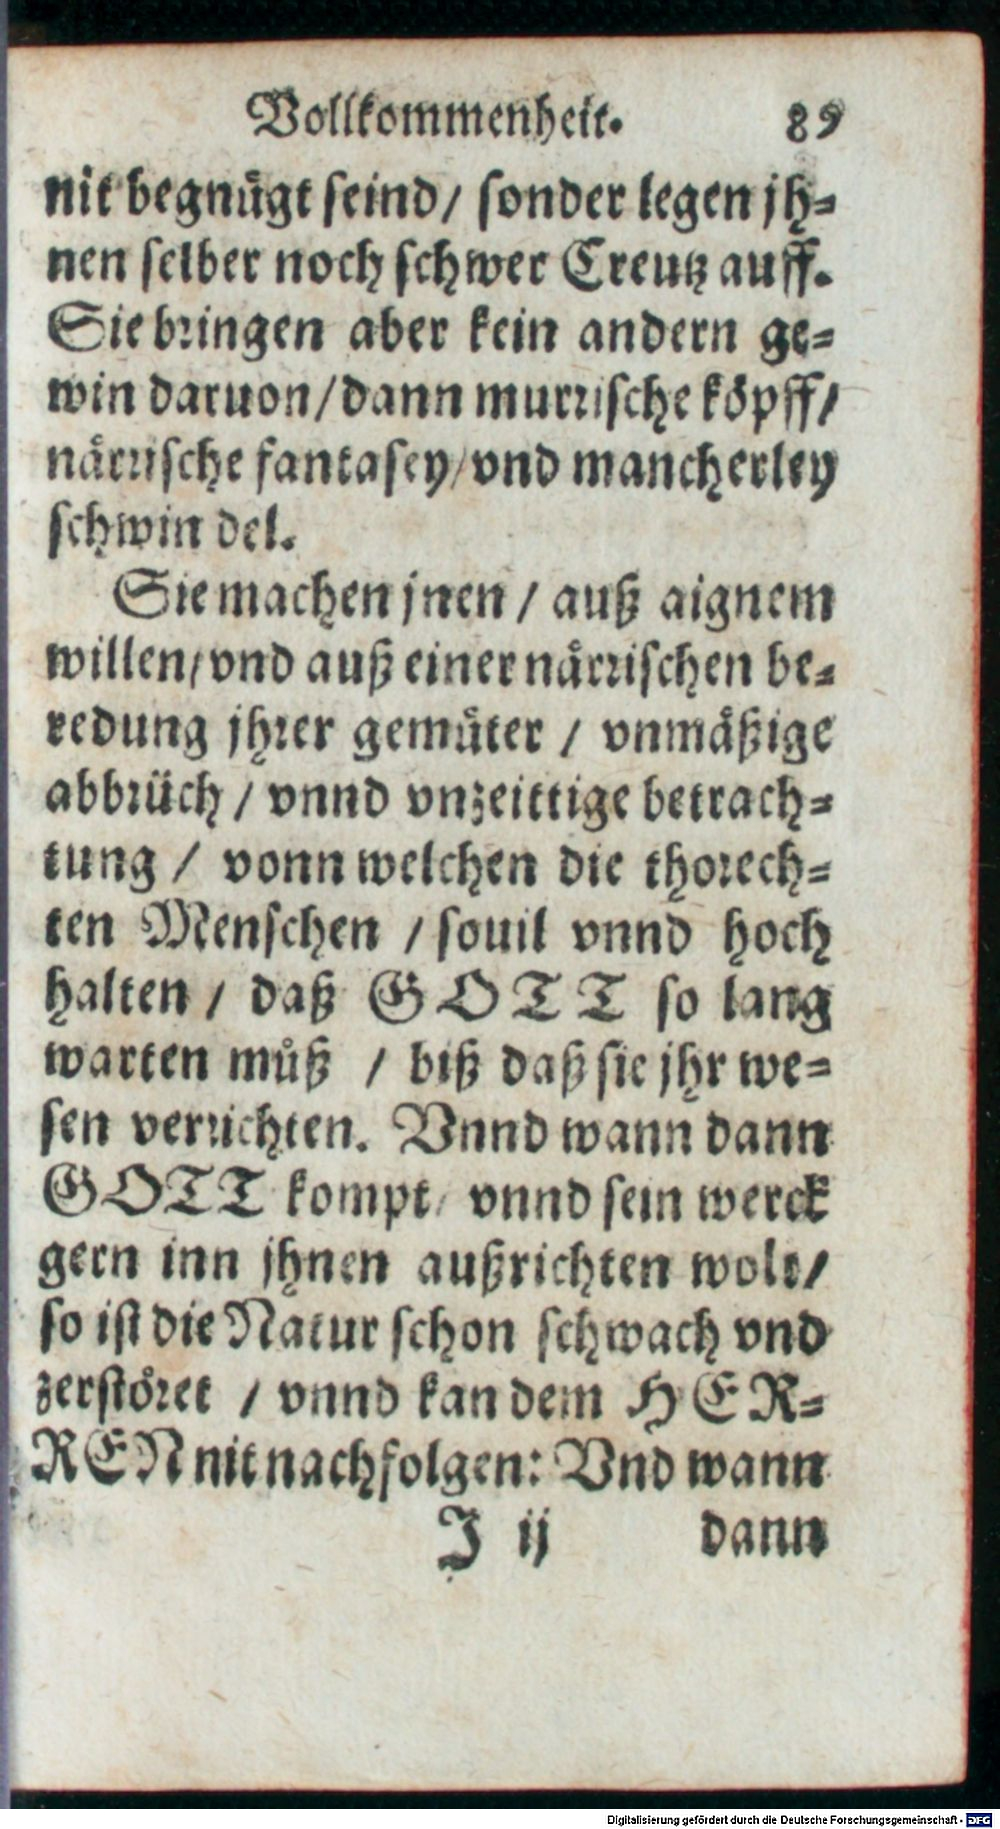 Vollkommenheit. 89
nit begnügt seind/ sonder legen jh⸗
nen selber noch schwer Creutz auff.
Sie bringen aber kein andern ge⸗
win daruon/dann murrische köpff/
närrische fantasey/vnd mancherley
schwin del.
Sie machen jnen / auß aignem
willen/vnd auß einer närrischen be⸗
redung jhrer gemüter / vnmäßige
abbrüch / vnnd vnzeittige betrach⸗
tung / vonn welchen die thorech⸗
ten Menschen / souil vnnd hoch
halten / daß GOTT so lang
warten můß / biß daß sie jhr we⸗
sen verrichten. Vnnd wann dann
GOTT kompt/ vnnd sein werck
gern inn jhnen außrichten wolt/
so ist die Natur schon schwach vnd
zerstöret / vnnd kan dem HER⸗
REN nit nachfolgen: Vnd wann
J ij dann
Digitalisierung gefördert durch die Deutsche Forschungsgemeinschaft - DFG